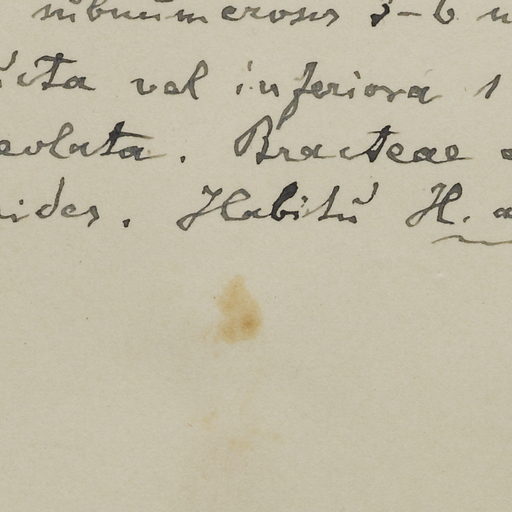 subnumerosos 3-6
vel inferiora 1
eolata. Bracteae
ides. Habitu H. a